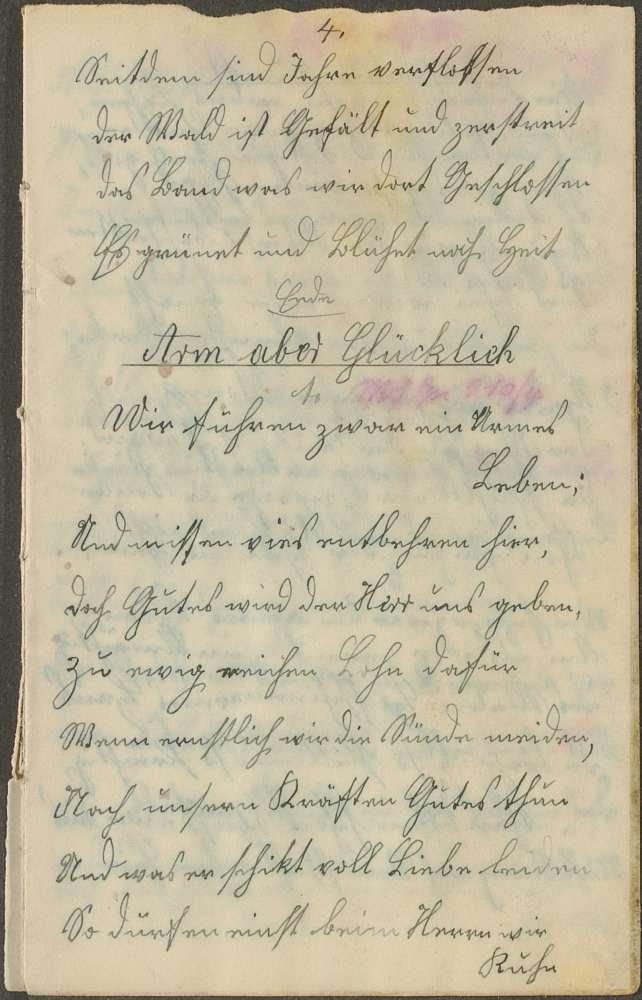 4.
Seitdem sind Jahre verflossen
der Wald ist Gefält und zerstreit
das Band was wir dort Geschlossen
Es grünet und Blühet noch Heit
Ende
Arm aber Glücklich
1.
Wir führen zwar ein Armes
Leben;
Und missen vies entbehren hier,
doch Gutes wird der Herr uns geben,
zu ewig reichen Lohn dafür
Wenn ernstlich wir die Sünde meiden,
Nach unsern Kräften Gutes thun
Und was er schikt voll Liebe leiden
So dürfen einst beim Herrn wir
Ruhn